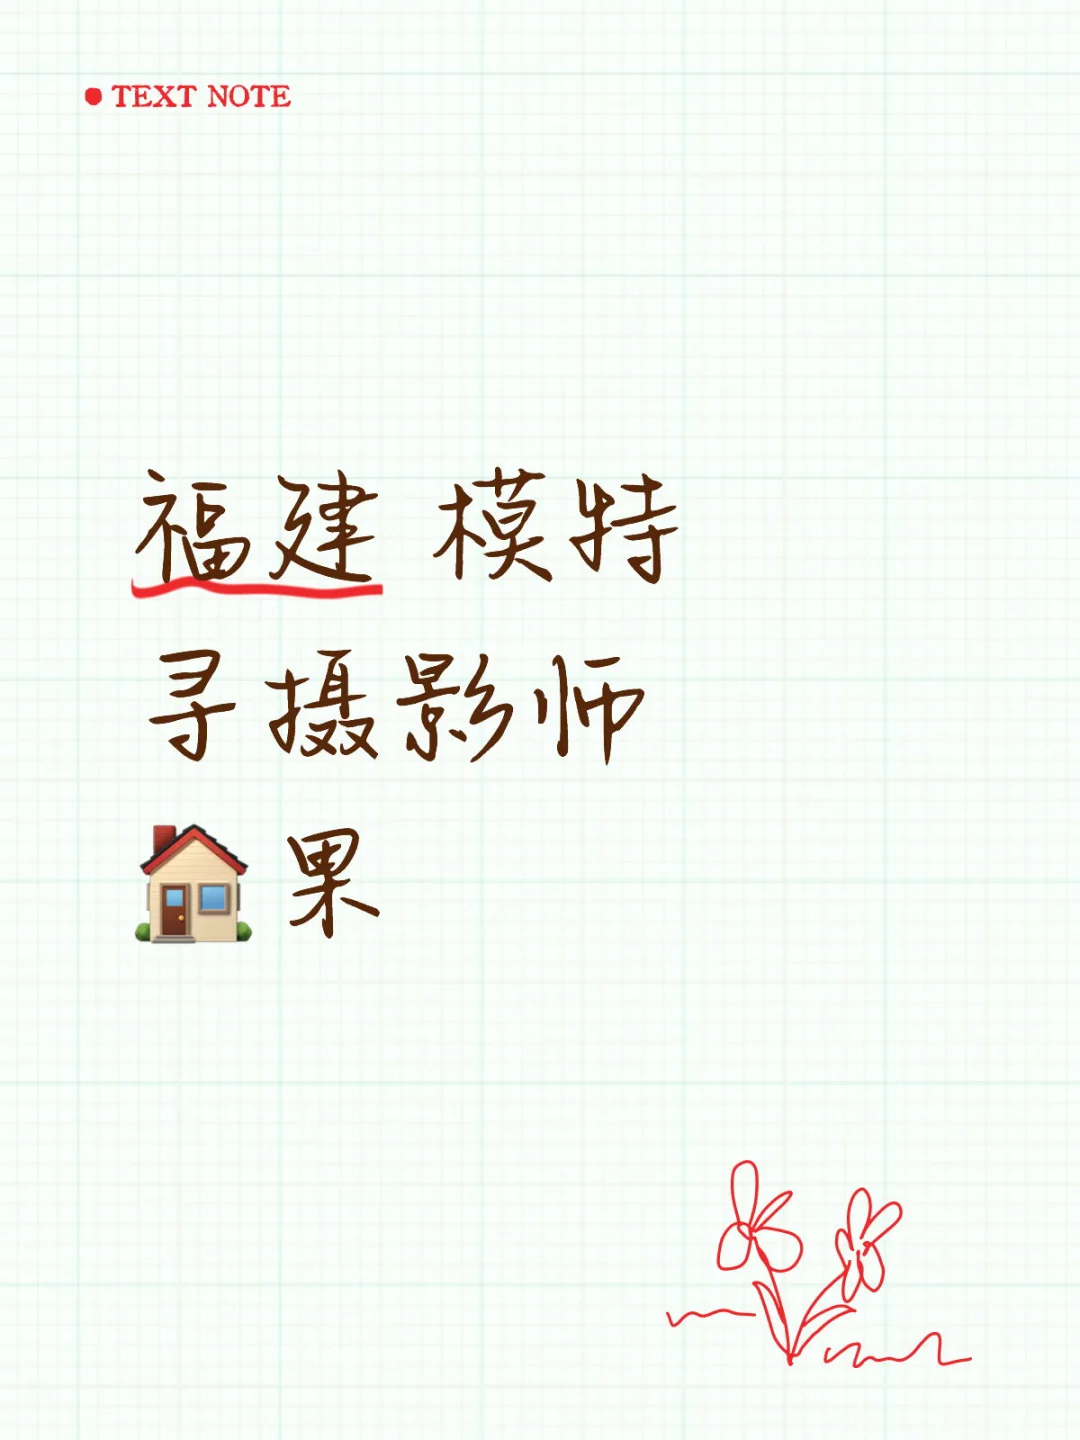 TEXT NOTE
福建 模特
寻摄影师
🏠 果